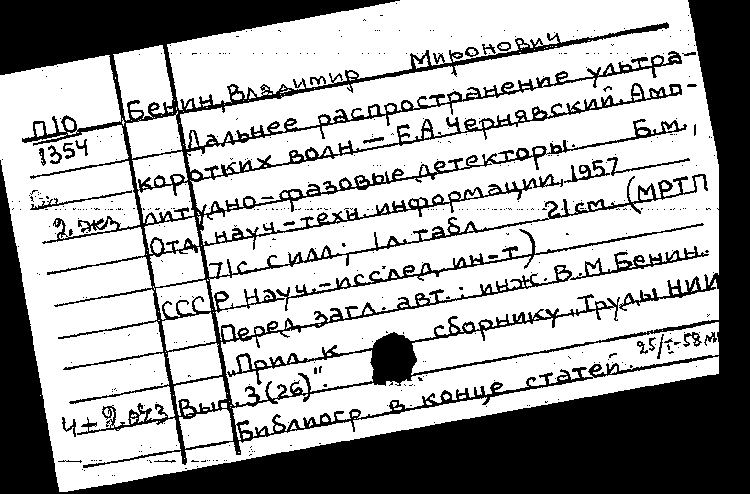 Бенин, Владимир Миронович
П10
1354
Дальнее распространение ультра-
коротких волн. — Е.А. Чернявский. Амп-
литудно-фазовые детекторы. Б.м.,
2. экз
Отд. науч.-техн. информации, 1957
71 с. с илл.; 1 л. табл. 21 см. (МРТП
СССР. Науч.-исслед. ин-т).
Перед загл. авт.: инж. В.М. Бенин.
"Прил. к сборнику "Труды НИИ
Вып. 3(26)".
25/I-58
Библиогр. в конце статей.